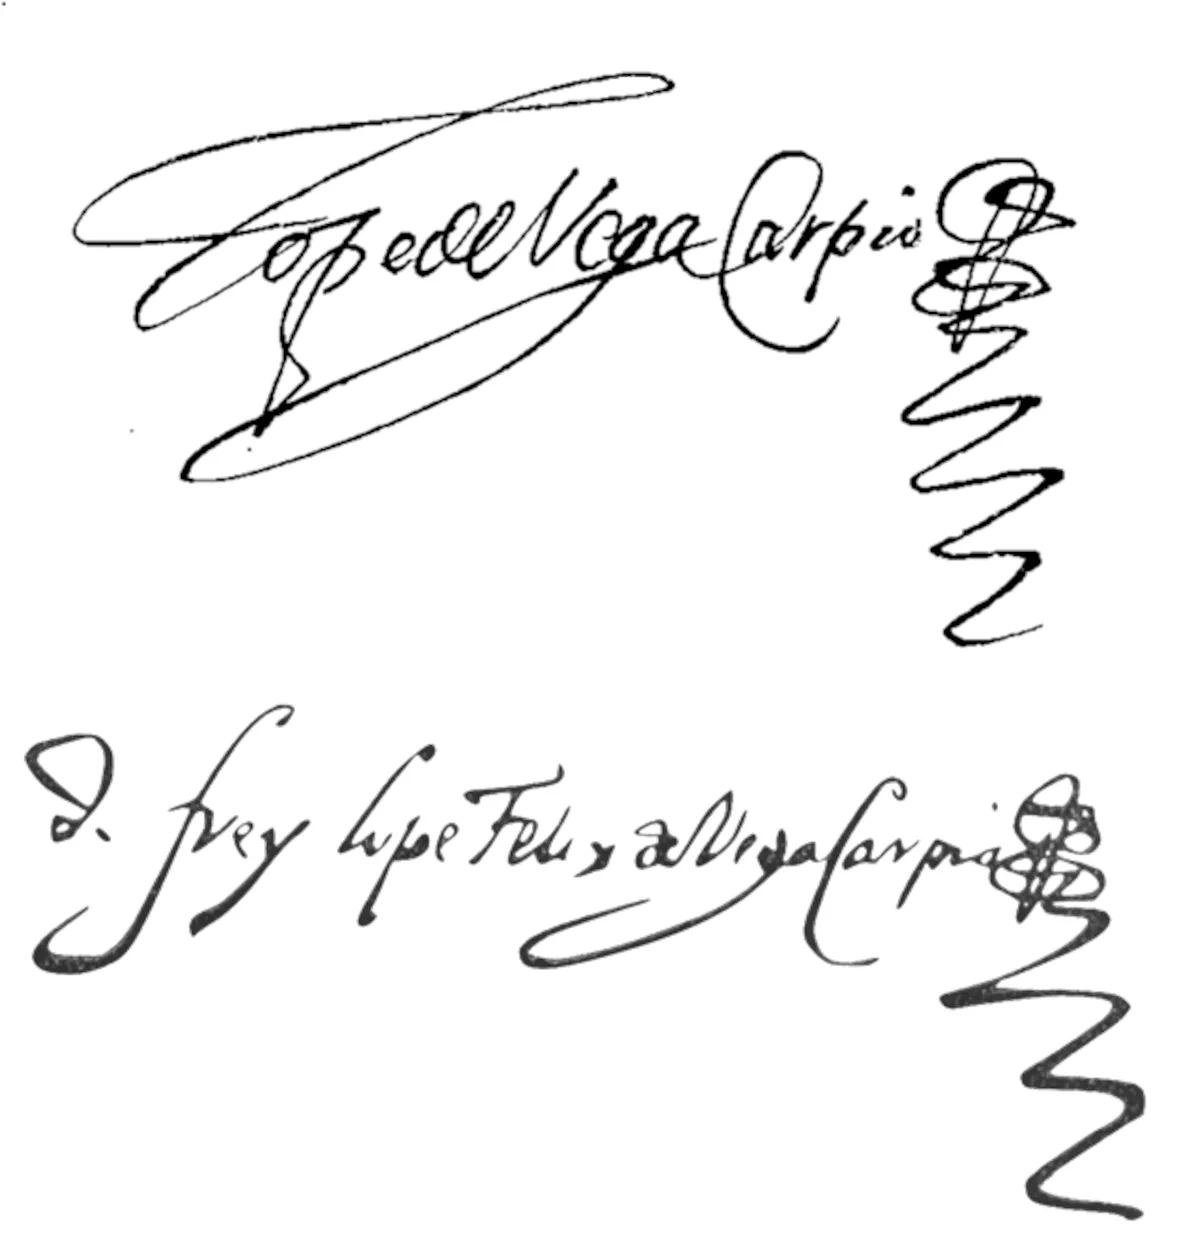 Lope de Vega Carpio
D. frey lope Felix de Vega Carpio